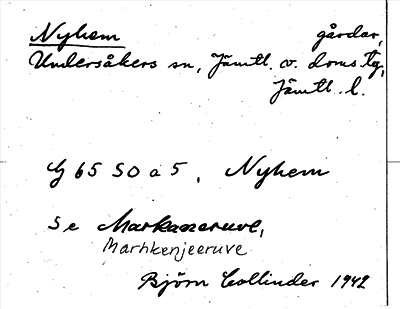 Nyhem gårdar,
Undersåkers sn, Jämtl. v. doms tg,
Jämtl. l.
G 65 SO a 5, Nyhem
Se Markaneruve,
Marhkenjeeruve
Björn Collinder 1942